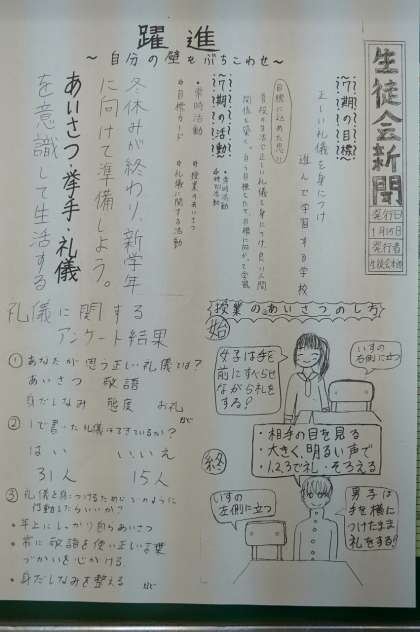 生徒会新聞
発行日
1月15日
発行者
生徒会本部
躍進
～自分の壁をぶちこわせ～
～7期の目標～
正しい礼儀を身につけ
進んで学習する学校
目標に込めた思い
～7期の活動～
・常時活動
・目標カード
・授業のあいさつ
・礼儀に関する活動
冬休みが終わり、新学年
に向けて準備しよう。
あいさつ・挙手・礼儀
を意識して生活する
礼儀に関する
アンケート結果
①あなたが思う正しい礼儀では?
あいさつ 敬語
身だしなみ 態度 お礼
など
②1で書いた礼儀はできているか?
はい いいえ
31人 15人
③礼儀を身につけるためにどのように
行動したらいいか?
・年上にしっかり自らあいさつ
・常に敬語を使い正しい言葉
づかいを心がける
・身だしなみを整える など
授業のあいさつのしかた
始
いすの
右側に立つ
女子は手を
前にすべらせ
ながら礼を
する!
・相手の目を見る
・大きく、明るい声で
・1,2,3で礼・そろえる
終
いすの
左側に立つ
男子は
手を横に
つけたまま
礼をする!